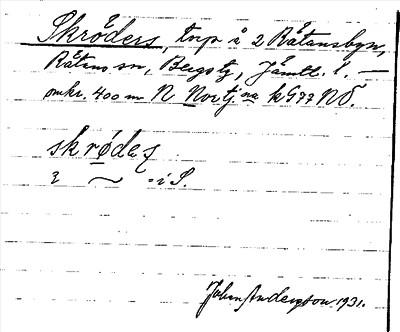 Skröders, tnp å 2 Råtansbyn,
Råtans sn, Bergs tg, Jämtl. l. —
omkr. 400 m N Nortj:na k G 77 NÖ.
skrødeʂ
~ - i S.
Johan Anderson 1931.